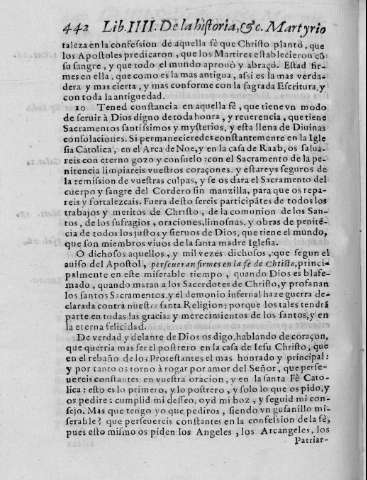 442 Lib. IIII. De la historia, &c. Martyrio
taleza en la confession de aquella fê que Christo plantô, que
los Apostoles predicaron, que los Martires establecieron cô
su sangre, y que todo el mundo aprouô y abraçó. Estad fir-
mes en ella, que como es la mas antigua, assi es la mas verda-
dera y mas cierta, y mas conforme con la sagrada Escritura, y
con toda la antiguedad.
20 Tened constancia en aquella fê, que tiene vn modo
de seruir à Dios digno de toda honra, y reuerencia, que tiene
Sacramentos santissimos y mysterios, y esta llena de Diuinas
consolaciones. Si permaneciere des constantemente en la Igle
sia Catolica, en el Arca de Noe, y en la casa de Raab, os salua-
reis con eterno gozo y consuelo: con el Sacramento de la pe-
nitencia limpiareis vuestros coraçones, y estareys seguros de
la remission de vuestras culpas, y se os dara el Sacramento del
cuerpo y sangre del Cordero sin manzilla, para que os repa-
reis y fortalezcais. Fuera desto sereis participâtes de todos los
trabajos y meritos de Christo, de la comunion de los San-
tos, de sufragios, oraciones, limosnas, y obras de penitê-
cia de todos los justos y sieruos de Dios, que tiene el mundo,
que son miembros viuos de la santa madre Iglesia.
O dichosos aquellos, y mil vezes dichosos, que segun el
auiso del Apostol, perseueran firmes en la fê de Christo, princi
palmente en este miserable tiempo, quando Dios es blasfe-
mado, quando matan a los Sacerdotes de Christo, y profanan
los santos Sacramentos, y el demonio infernal haze guerra de-
clarada contra nuestra santa Religion; porque los tales tendrà
parte en todas las gracias y merecimientos de los santos, y en
la eterna felicidad.
De verdad y delante de Dios os digo, hablando de coraçon,
que querria mas ser el postrero en la casa de Iesu Christo, que
en el rebaño de los Protestantes el mas honrado y principal:
y por tanto os torno à rogar por amor del Señor, que perse-
uereis constantes en vuestra oracion, y en la santa Fê Cato-
lica: esto es lo primero, y lo postrero, y solo lo que os pido, y
os pedire: cumplid mi desseo, oyd mi boz, y seguid mi con-
sejo. Mas que tengo yo que pediros, siendo vn gusanillo mi-
serable? que perseuereis constantes en la confession de la fê,
pues esto mismo os piden los Angeles, los Arcangeles, los
Patriar-